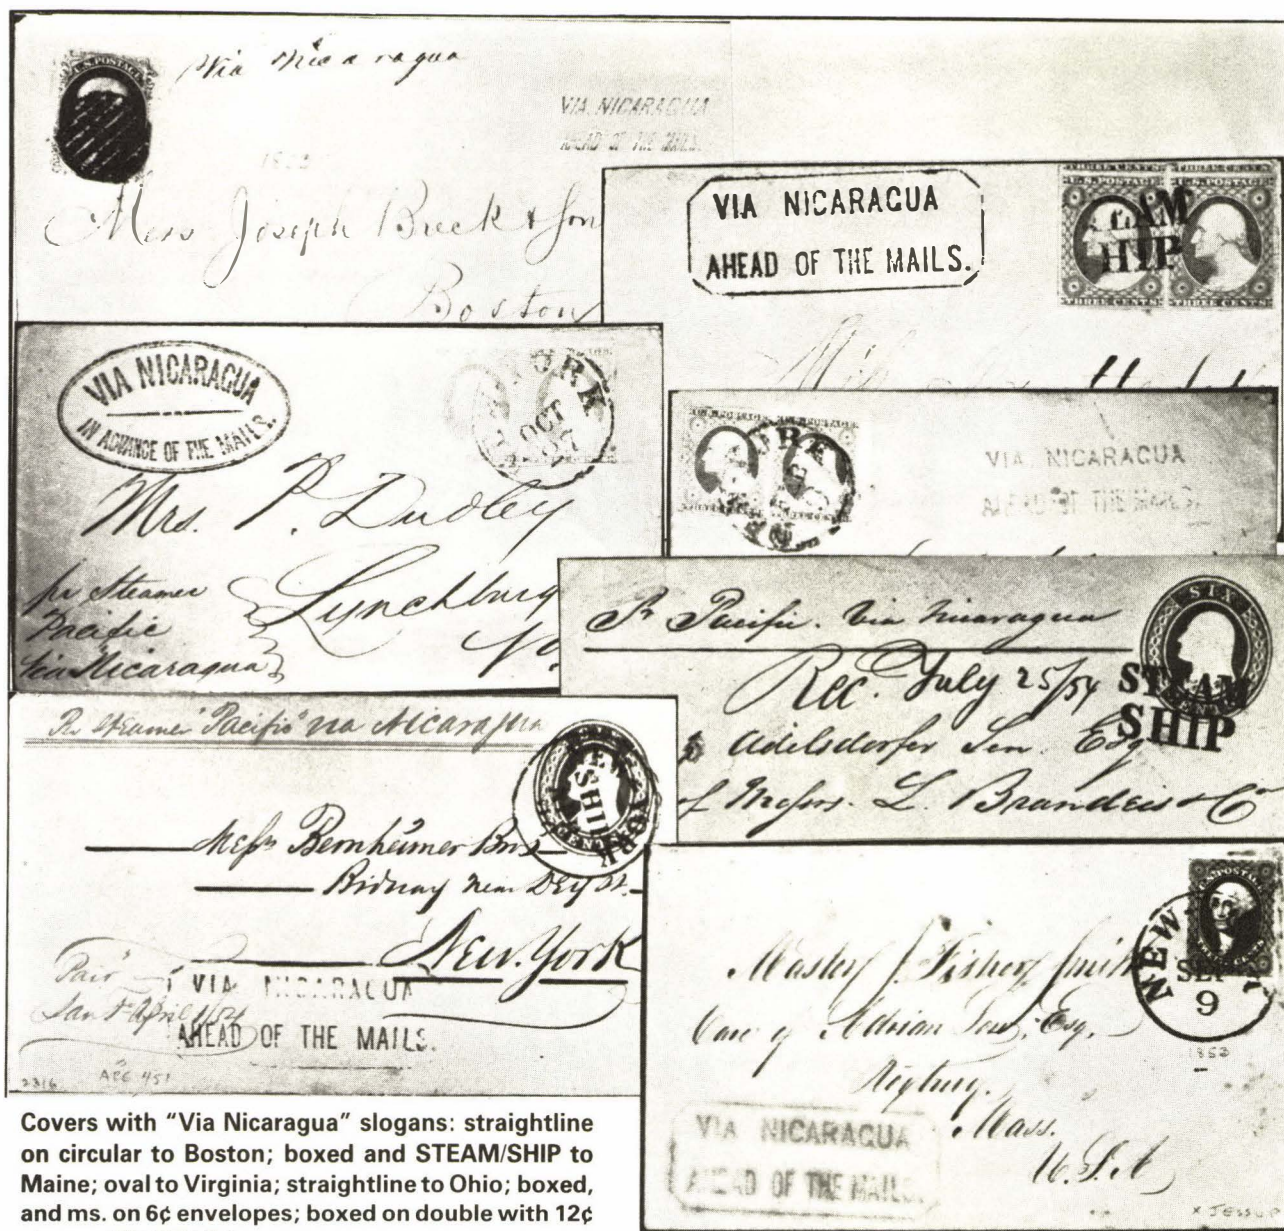 Via Nicaragua
U.S. POSTAGE
VIA NICARAGUA
AHEAD OF THE MAILS.
1853
Mess Joseph Breck & Son
Boston
VIA NICARAGUA
AHEAD OF THE MAILS.
THREE CENTS THREE CENTS
U.S. POSTAGE
SHIP
THREE CENTS THREE CENTS
VIA NICARAGUA
IN ADVANCE OF THE MAILS.
YORK
OCT
Mrs. P. Dudley
Lynchburg
Va
pr Steamer
Pacific
via Nicaragua
VIA NICARAGUA
AHEAD OF THE MAILS.
Pr Pacific. Via Nicaragua
SIX
Rec. July 25/54
STEAM
SHIP
Adelsdorfer Sen. Esq
of Messrs. L. Brandeis & Co
Pr Steamer "Pacific" via Nicaragua
SHIP
Messrs Bernheimer Bros
Bidway near Dey St.
New. York
Paid
San Fo April 1/54
VIA NICARAGUA
AHEAD OF THE MAILS.
2316 APC 451
NEW
SEP
9
1853
Master J. Fisher Smith
Care of Adrian Low, Esq.
Mass.
U.S.A
VIA NICARAGUA
AHEAD OF THE MAILS.
X JESSUP
Covers with "Via Nicaragua" slogans: straightline
on circular to Boston; boxed and STEAM/SHIP to
Maine; oval to Virginia; straightline to Ohio; boxed,
and ms. on 6¢ envelopes; boxed on double with 12¢